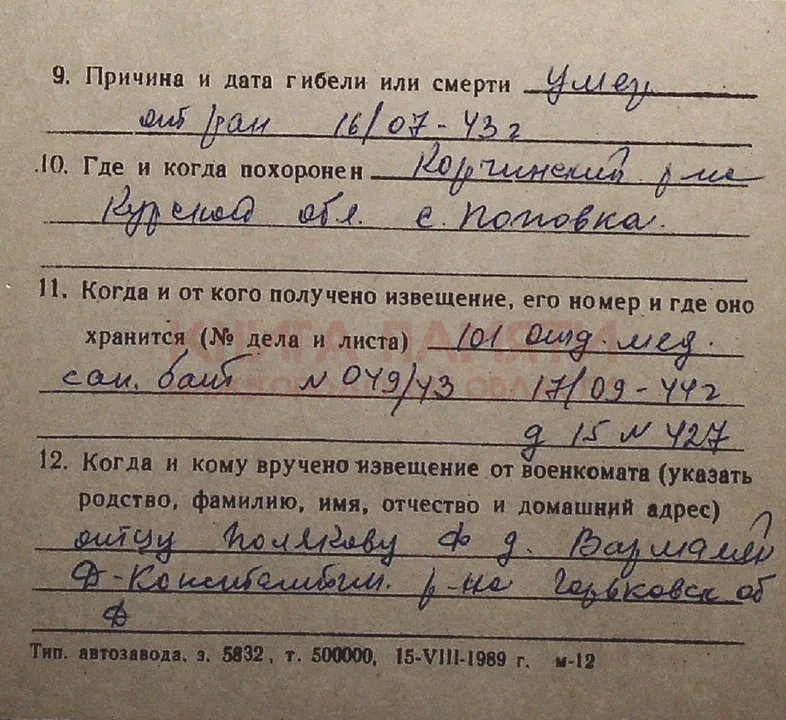 9. Причина и дата гибели или смерти умер
от ран 16/07-43 г
10. Где и когда похоронен Корчинский р-не
Курской обл. с. Поповка.
11. Когда и от кого получено извещение, его номер и где оно
хранится (№ дела и листа) 101 отд. мед.
сан. бат N 049/43 17/09-44 г
д 15 N 427
12. Когда и кому вручено извещение от военкомата (указать
родство, фамилию, имя, отчество и домашний адрес)
отцу Полякову Ф д.
Д-Константин. р-на Горьковск об
Тип. автозавода. з. 5832, т. 500000, 15-VIII-1989 г. м-12